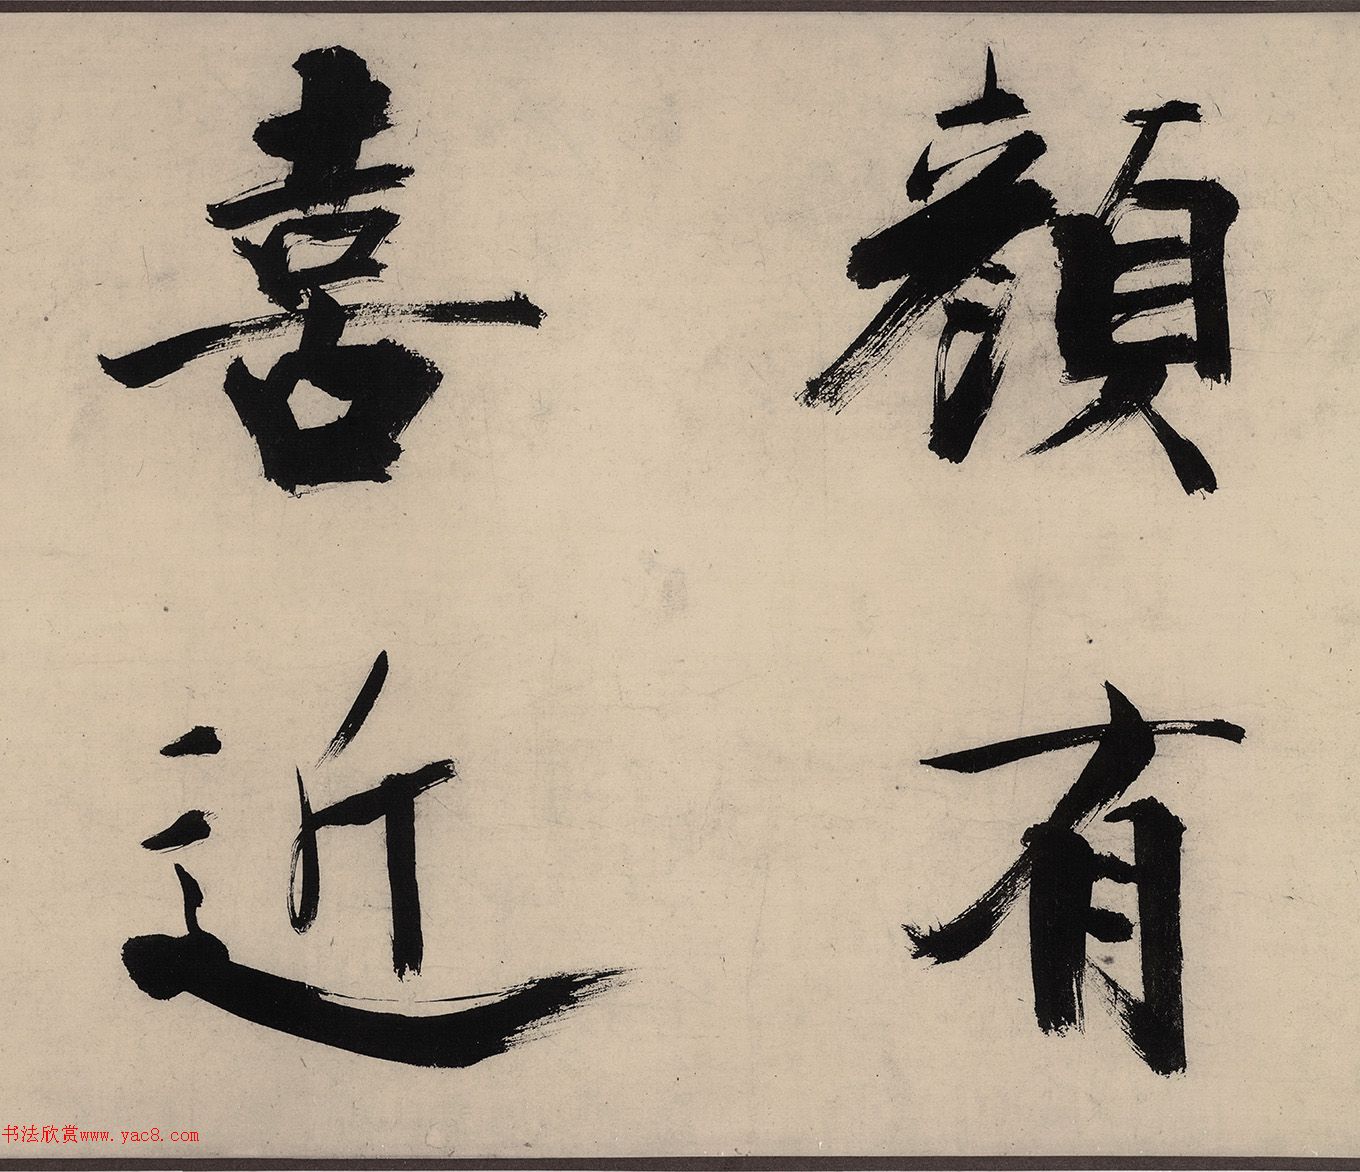 顔有
喜近
书法欣赏www.yac8.com